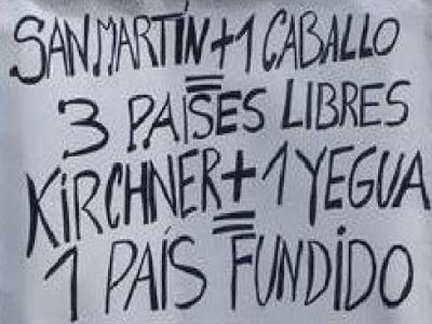 SAN MARTÍN + 1 CABALLO
=
3 PAÍSES LIBRES
KIRCHNER + 1 YEGUA
=
1 PAÍS FUNDIDO